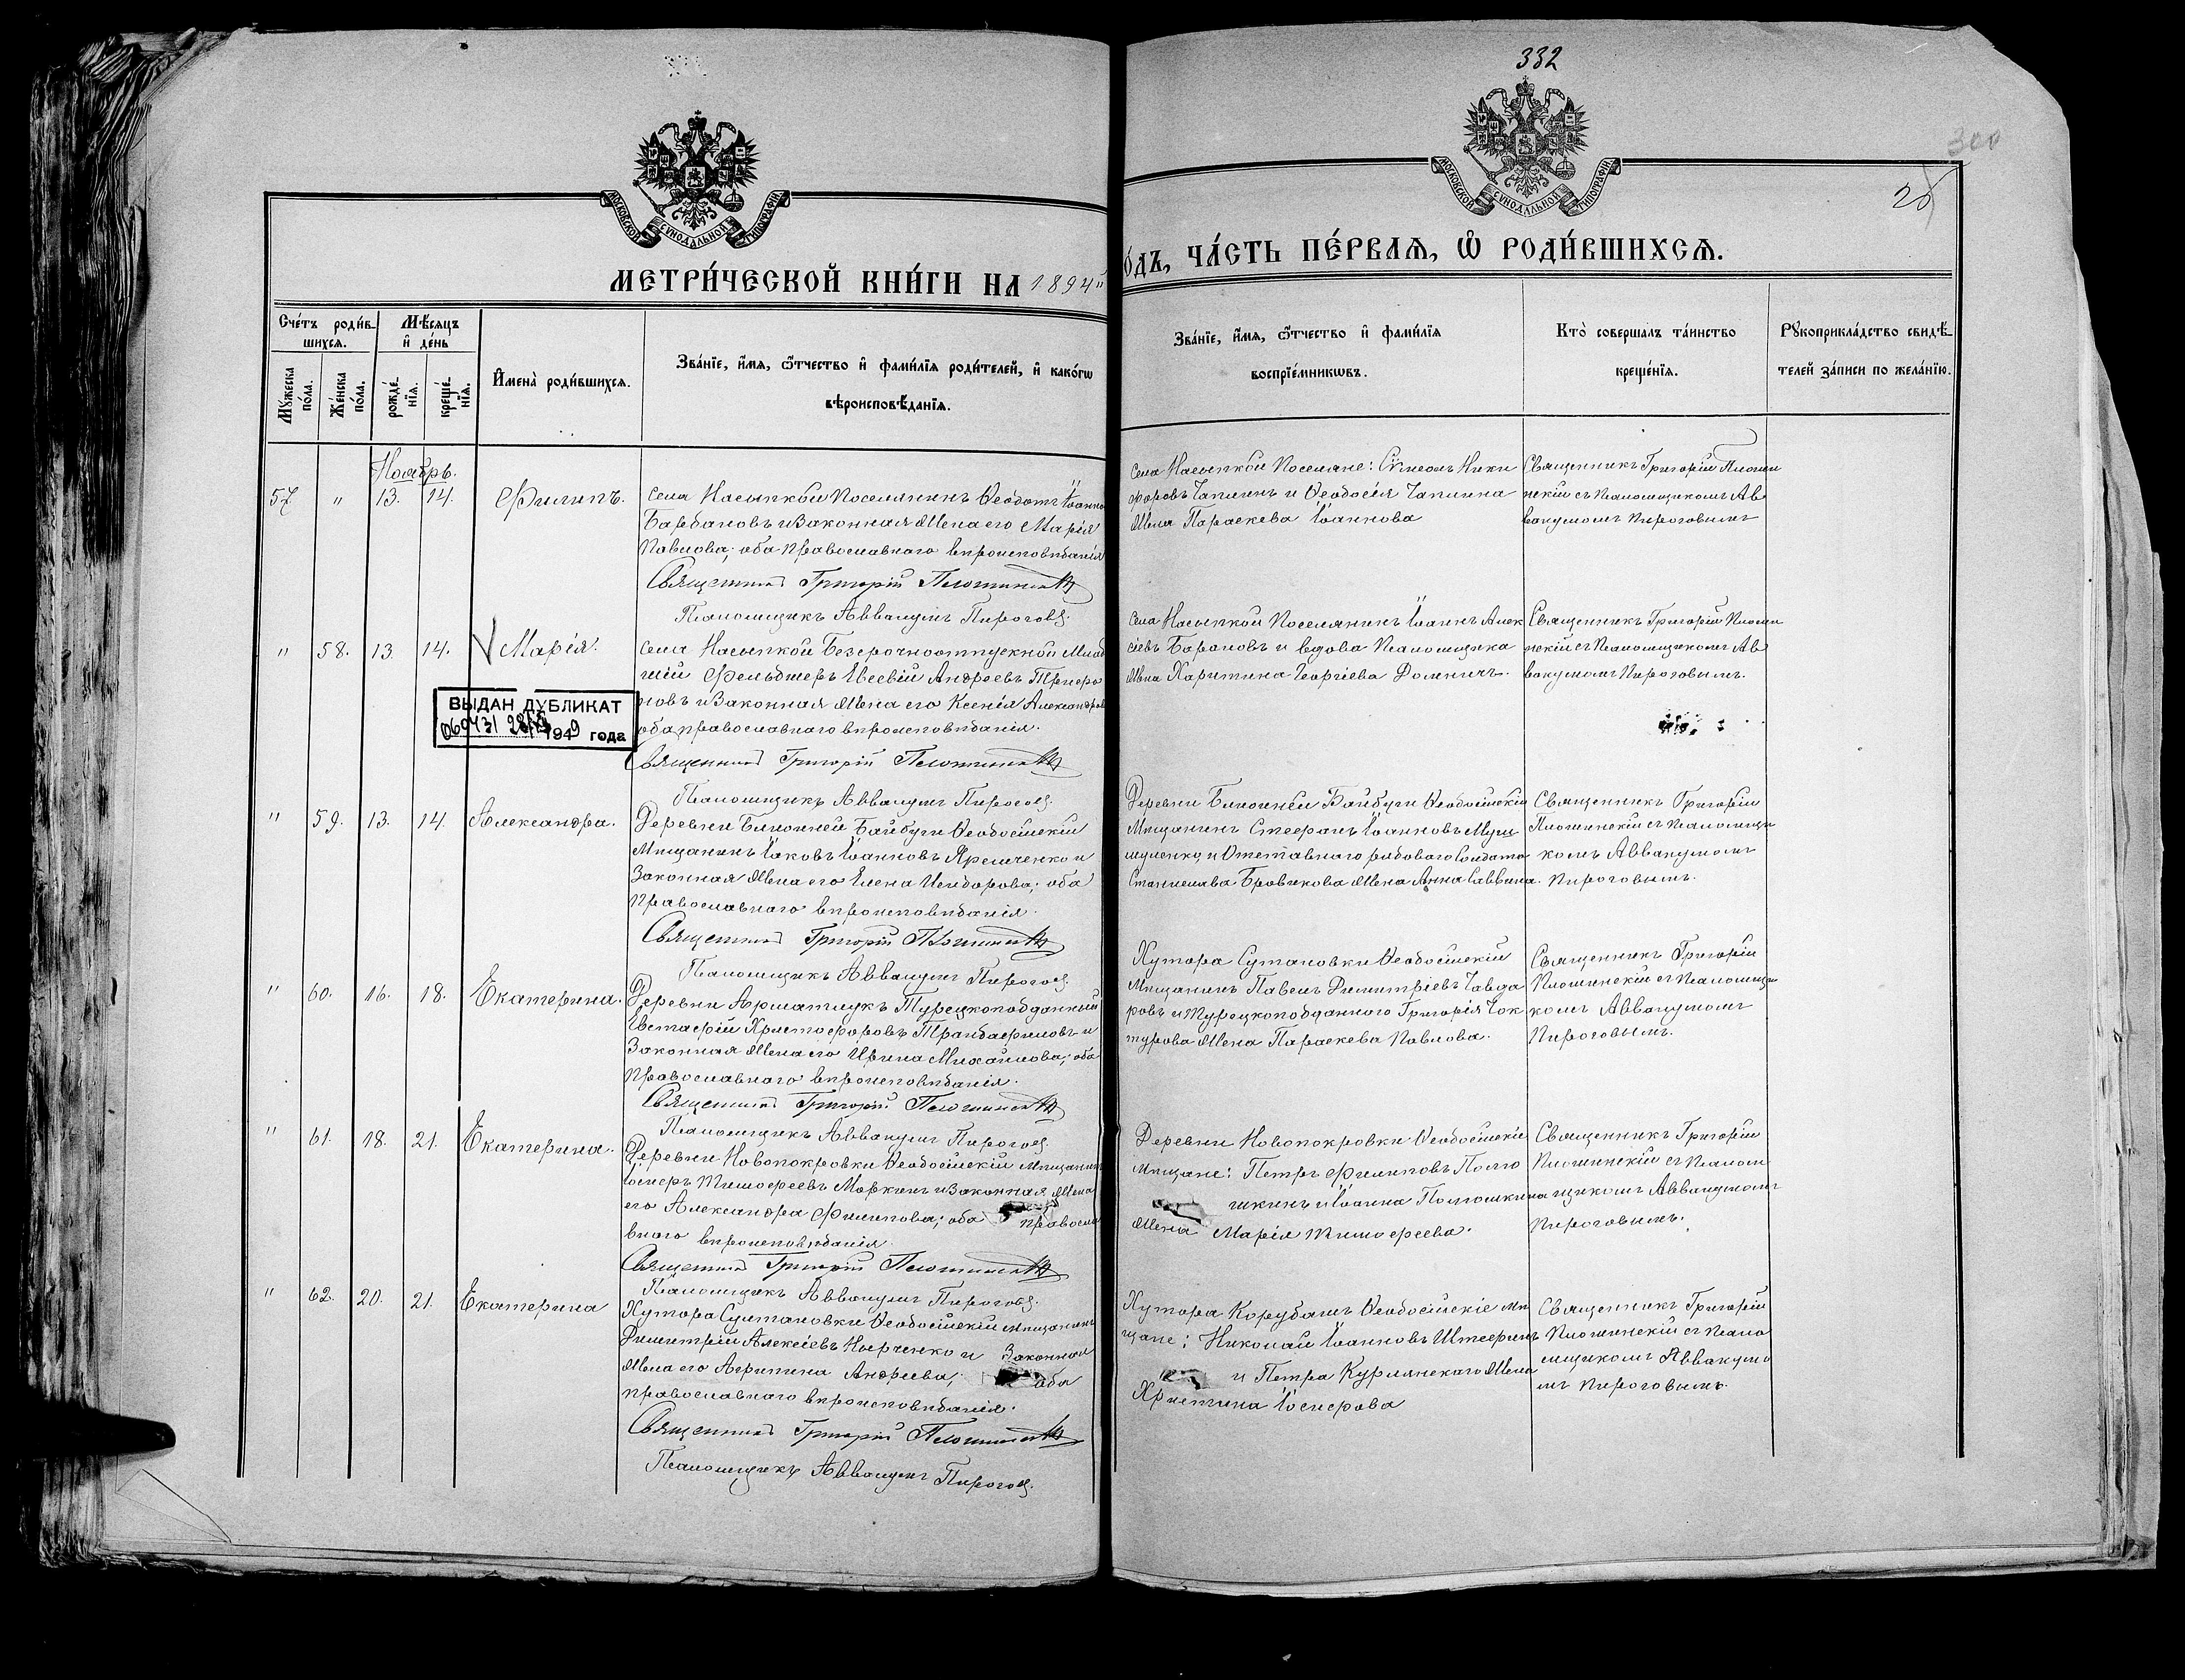 332
300
26
МОСКОВСКОЙ СѴНОДАЛЬНОЙ ТИПОГРАФІИ
МОСКОВСКОЙ СѴНОДАЛЬНОЙ ТИПОГРАФІИ
МЕТРИ́ЧЕСКОЙ КНИ́ГИ НА 1894"
О́ДЪ, ЧА́СТЬ ПЕ́РВАѦ, Ѡ҆ РОДИ́ВШИХСѦ.
Сче́тъ роди́в-
шихсѧ.
Мꙋ́жеска по́ла.
Же́нска по́ла.
Мѣ́сѧцъ и҆ де́нь
рожде́-нїѧ.
креще́-нїѧ.
И҆мена̀ роди́вшихсѧ.
Зва́нїе, и҆́мѧ, ѻ҆́тчество и҆ фами́лїѧ роди́телей, и҆ како́гѡ
вѣроисповѣ́данїѧ.
Зва́нїе, и҆́мѧ, ѻ҆́тчество и҆ фами́лїѧ
воспрїе́мникѡвъ.
Кто̀ совершалъ та́инство
креще́нїѧ.
Рꙋкоприкла́дство свидѣ́-
телей за́писи по жела́нїю.
Ноябрь.
57 " 13. 14. Филиппъ.
Села Насыпкой Поселянинъ Ѳеодотъ Іоанно
Барбановъ и Законная Жена его Марія
Павлова; оба православнаго вѣроисповѣданія
Священникъ Григорій
Псаломщикъ Аввакумъ Пироговъ.
Села Насыпкой Поселяне: Симеонъ Ники
форовъ Чаплинъ и Ѳеодосія Чаплина
Жена Параскева Іоаннова
Священникъ Григорій
нскій съ Псаломщикомъ Ав
вакумомъ Пироговымъ
" 58. 13. 14. Марія.
Села Насыпкой Безсрочноотпускной Млад
шій Фельдшеръ Евсевій Андреевъ
новъ и Законная Жена его Ксенія Александров
оба православнаго вѣроисповѣданія.
Священникъ Григорій
Псаломщикъ Аввакумъ Пироговъ.
ВЫДАН ДУБЛИКАТ
1949 года
Села Насыпкой Поселянинъ Іоаннъ Алек
сѣевъ Барановъ и вдова Псаломщика
Жена Харитина Георгіева Домничъ.
Священникъ Григорій
нскій съ Псаломщикомъ Ав
вакумомъ Пироговымъ.
" 59. 13. 14. Александра.
Деревни Ближней Байбуги Ѳеодосійскій
Мѣщанинъ Іаковъ Іоанновъ Яременко и
Законная Жена его Елена Исидорова; оба
Православнаго вѣроисповѣданія.
Священникъ Григорій
Псаломщикъ Аввакумъ Пироговъ.
Деревни Ближней Байбуги Ѳеодосійскій
Мѣщанинъ Стефанъ Іоанновъ
и Отставнаго рядоваго Солдата
Станислава Бровикова Жена Анна Саввина.
Священникъ Григорій
съ Псаломщи
комъ Аввакумомъ
Пироговымъ.
" 60. 16. 18. Екатерина.
Деревни Арматлукъ Турецкоподданный
Евстафій Христофоровъ Трандафиловъ и
Законная Жена его Ирина Михайлова; оба
Православнаго вѣроисповѣданія.
Священникъ Григорій
Псаломщикъ Аввакумъ Пироговъ.
Хутора Султановки Ѳеодосійскій
Мѣщанинъ Павелъ Димитріевъ Чавда
ровъ и Турецкоподданнаго Григорія Чок
турова Жена Параскева Павлова.
Священникъ Григорій
съ Псаломщи
комъ Аввакумомъ
Пироговымъ.
" 61. 18. 21. Екатерина.
Деревни Новопокровки Ѳеодосійскій Мѣщанинъ
Іосифъ Тимофеевъ Маркинъ и Законная Жена
его Александра Филипова; оба правосла
внаго вѣроисповѣданія.
Священникъ Григорій
Псаломщикъ Аввакумъ Пироговъ.
Деревни Новопокровки Ѳеодосійскіе
Мѣщане: Петръ Филиповъ Полю
шкинъ и Іоанна Полюшкина
Жена Марія Тимофеева.
Священникъ Григорій
съ Псалом
щикомъ Аввакумомъ
Пироговымъ.
" 62. 20. 21. Екатерина
Хутора Султановки Ѳеодосійскій Мѣщанинъ
Димитрій Алексіевъ и Законная
Жена его Агрипина Андреева; оба
православнаго вѣроисповѣданія.
Священникъ Григорій
Псаломщикъ Аввакумъ Пироговъ.
Хутора Корубашъ Ѳеодосійскіе Мѣ
щане: Николай Іоанновъ
и Петра Курлянскаго Жена
Христина Іосифова
Священникъ Григорій
съ Псало
мщикомъ Аввакумо
мъ Пироговымъ.